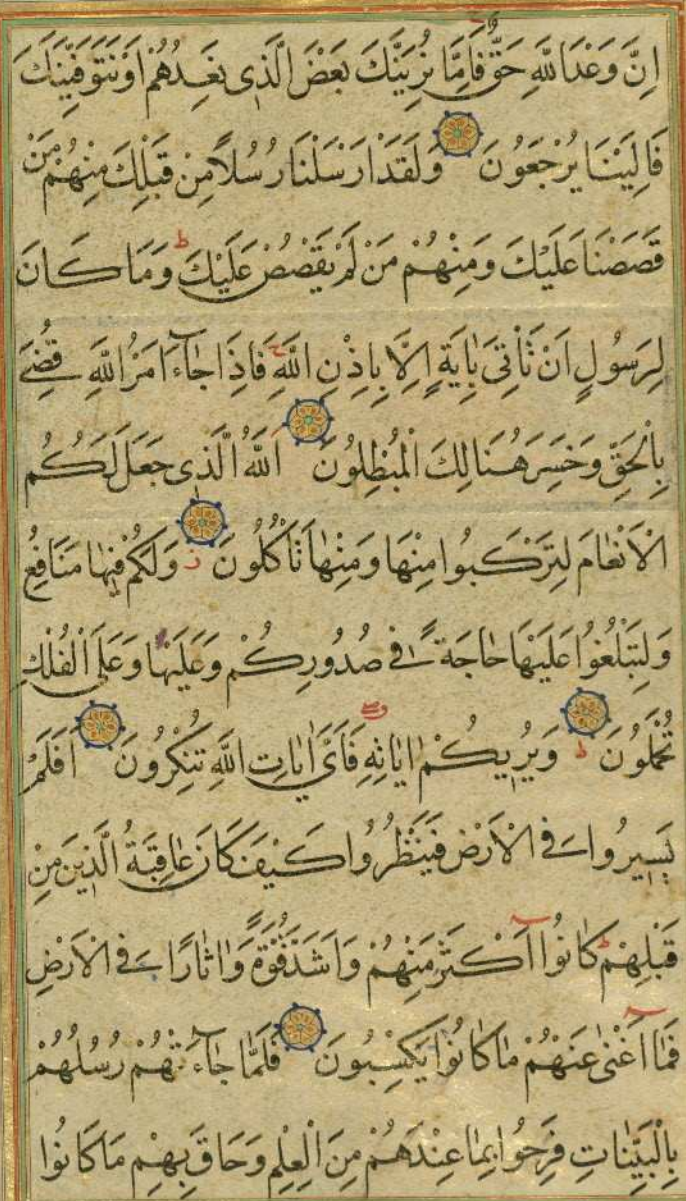 اِنَّ وَعْدَ اللّٰهِ حَقٌّ فَاِمَّا نُرِيَنَّكَ بَعْضَ الَّذٖى نَعِدُهُمْ اَوْ نَتَوَفَّيَنَّكَ
فَاِلَيْنَا يُرْجَعُونَ وَلَقَدْ اَرْسَلْنَا رُسُلًا مِنْ قَبْلِكَ مِنْهُمْ مَنْ
قَصَصْنَا عَلَيْكَ وَمِنْهُمْ مَنْ لَمْ نَقْصُصْ عَلَيْكَ ط وَمَا كَانَ
لِرَسُولٍ اَنْ يَأْتِىَ بِاٰيَةٍ اِلَّا بِاِذْنِ اللّٰهِ ج فَاِذَا جَآءَ اَمْرُ اللّٰهِ قُضِىَ
بِالْحَقِّ وَخَسِرَ هُنَالِكَ الْمُبْطِلُونَ اَللّٰهُ الَّذٖى جَعَلَ لَكُمُ
الْاَنْعَامَ لِتَرْكَبُوا مِنْهَا وَمِنْهَا تَأْكُلُونَ ز وَلَكُمْ فٖيهَا مَنَافِعُ
وَلِتَبْلُغُوا عَلَيْهَا حَاجَةً فٖى صُدُورِكُمْ وَعَلَيْهَا وَعَلَى الْفُلْكِ
تُحْمَلُونَ ط وَيُرٖيكُمْ اٰيَاتِهٖ فَاَىَّ اٰيَاتِ اللّٰهِ تُنْكِرُونَ اَفَلَمْ
يَسٖيرُوا فِى الْاَرْضِ فَيَنْظُرُوا كَيْفَ كَانَ عَاقِبَةُ الَّذٖينَ مِنْ
قَبْلِهِمْ ط كَانُوا اَكْثَرَ مِنْهُمْ وَاَشَدَّ قُوَّةً وَاٰثَارًا فِى الْاَرْضِ
فَمَا اَغْنٰى عَنْهُمْ مَا كَانُوا يَكْسِبُونَ فَلَمَّا جَآءَتْهُمْ رُسُلُهُمْ
بِالْبَيِّنَاتِ فَرِحُوا بِمَا عِنْدَهُمْ مِنَ الْعِلْمِ وَحَاقَ بِهِمْ مَا كَانُوا